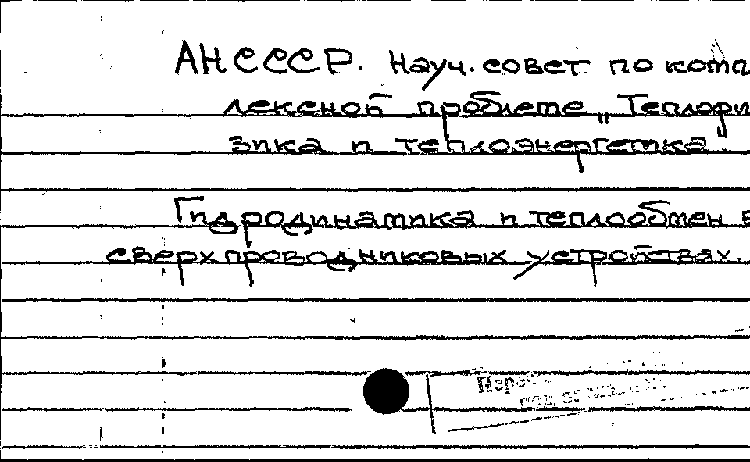 АН СССР. Науч. совет по комп
лексной проблеме „Теплофи
зика и теплоэнергетика".
Гидродинамика и теплообмен в
сверхпроводниковых устройствах.